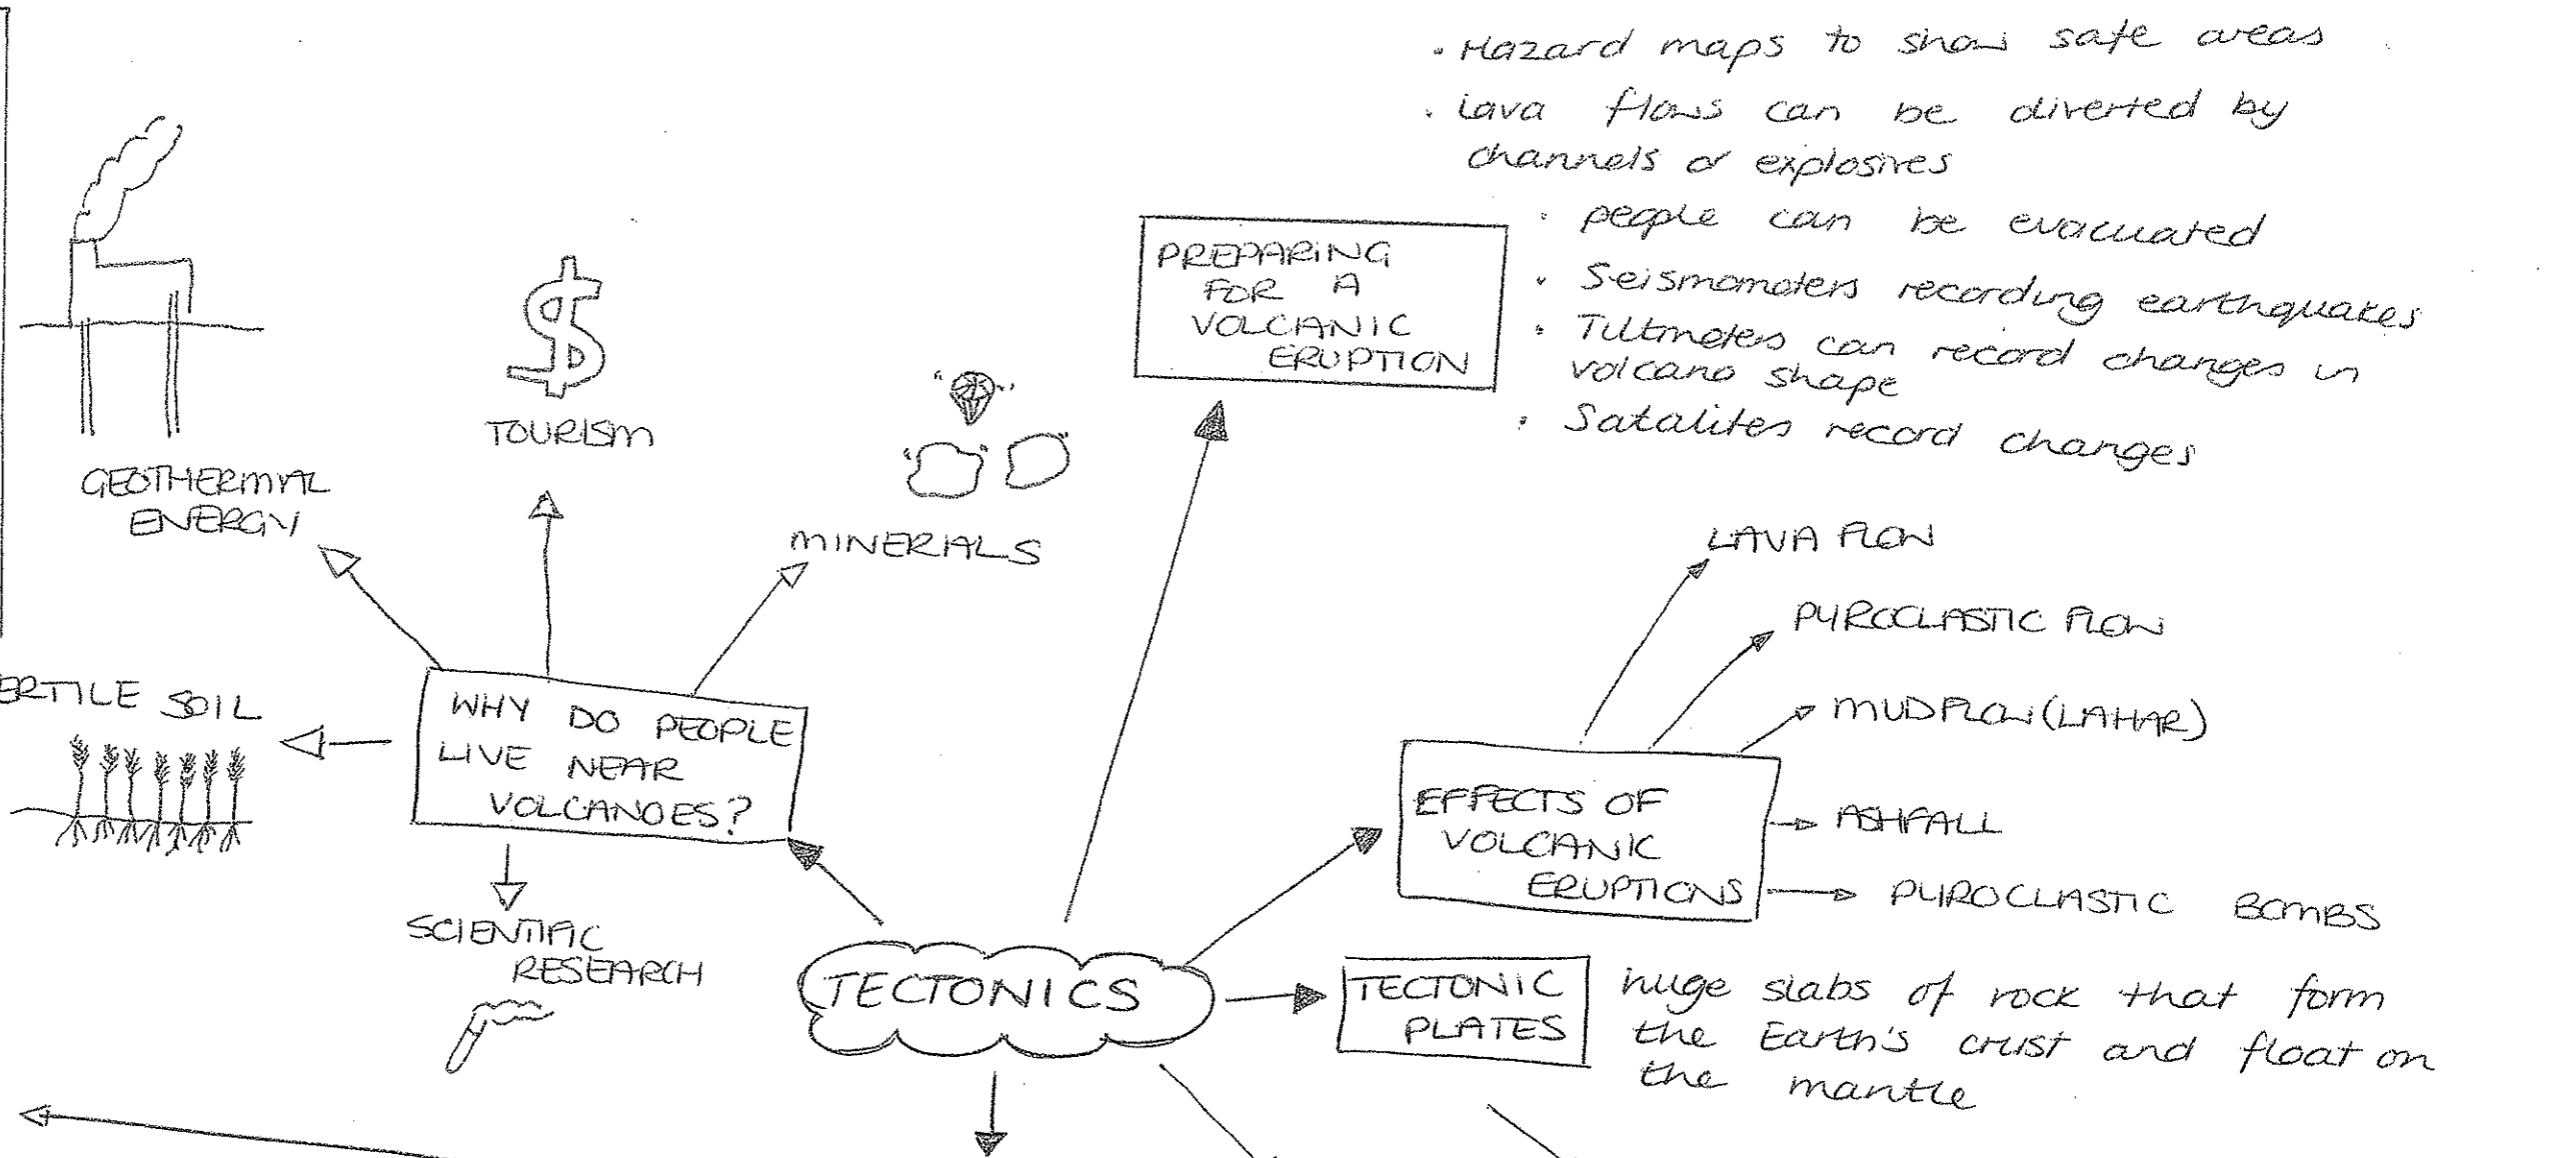 · Hazard maps to show safe areas
· Lava flows can be diverted by
channels or explosives
· people can be evacuated
· Seismometers recording earthquakes
· Tiltmeters can record changes in
volcano shape
· Satalites record changes
PREPARING
FOR A
VOLCANIC
ERUPTION
TOURISM
GEOTHERMAL
ENERGY
MINERIALS
ERTILE SOIL
WHY DO PEOPLE
LIVE NEAR
VOLCANOES?
SCIENTIFIC
RESEARCH
LAVA FLOW
PYROCLASTIC FLOW
MUDFLOW (LAHAR)
ASHFALL
PYROCLASTIC BOMBS
EFFECTS OF
VOLCANIC
ERUPTIONS
TECTONICS
TECTONIC
PLATES
huge slabs of rock that form
the Earth's crust and float on
the mantle